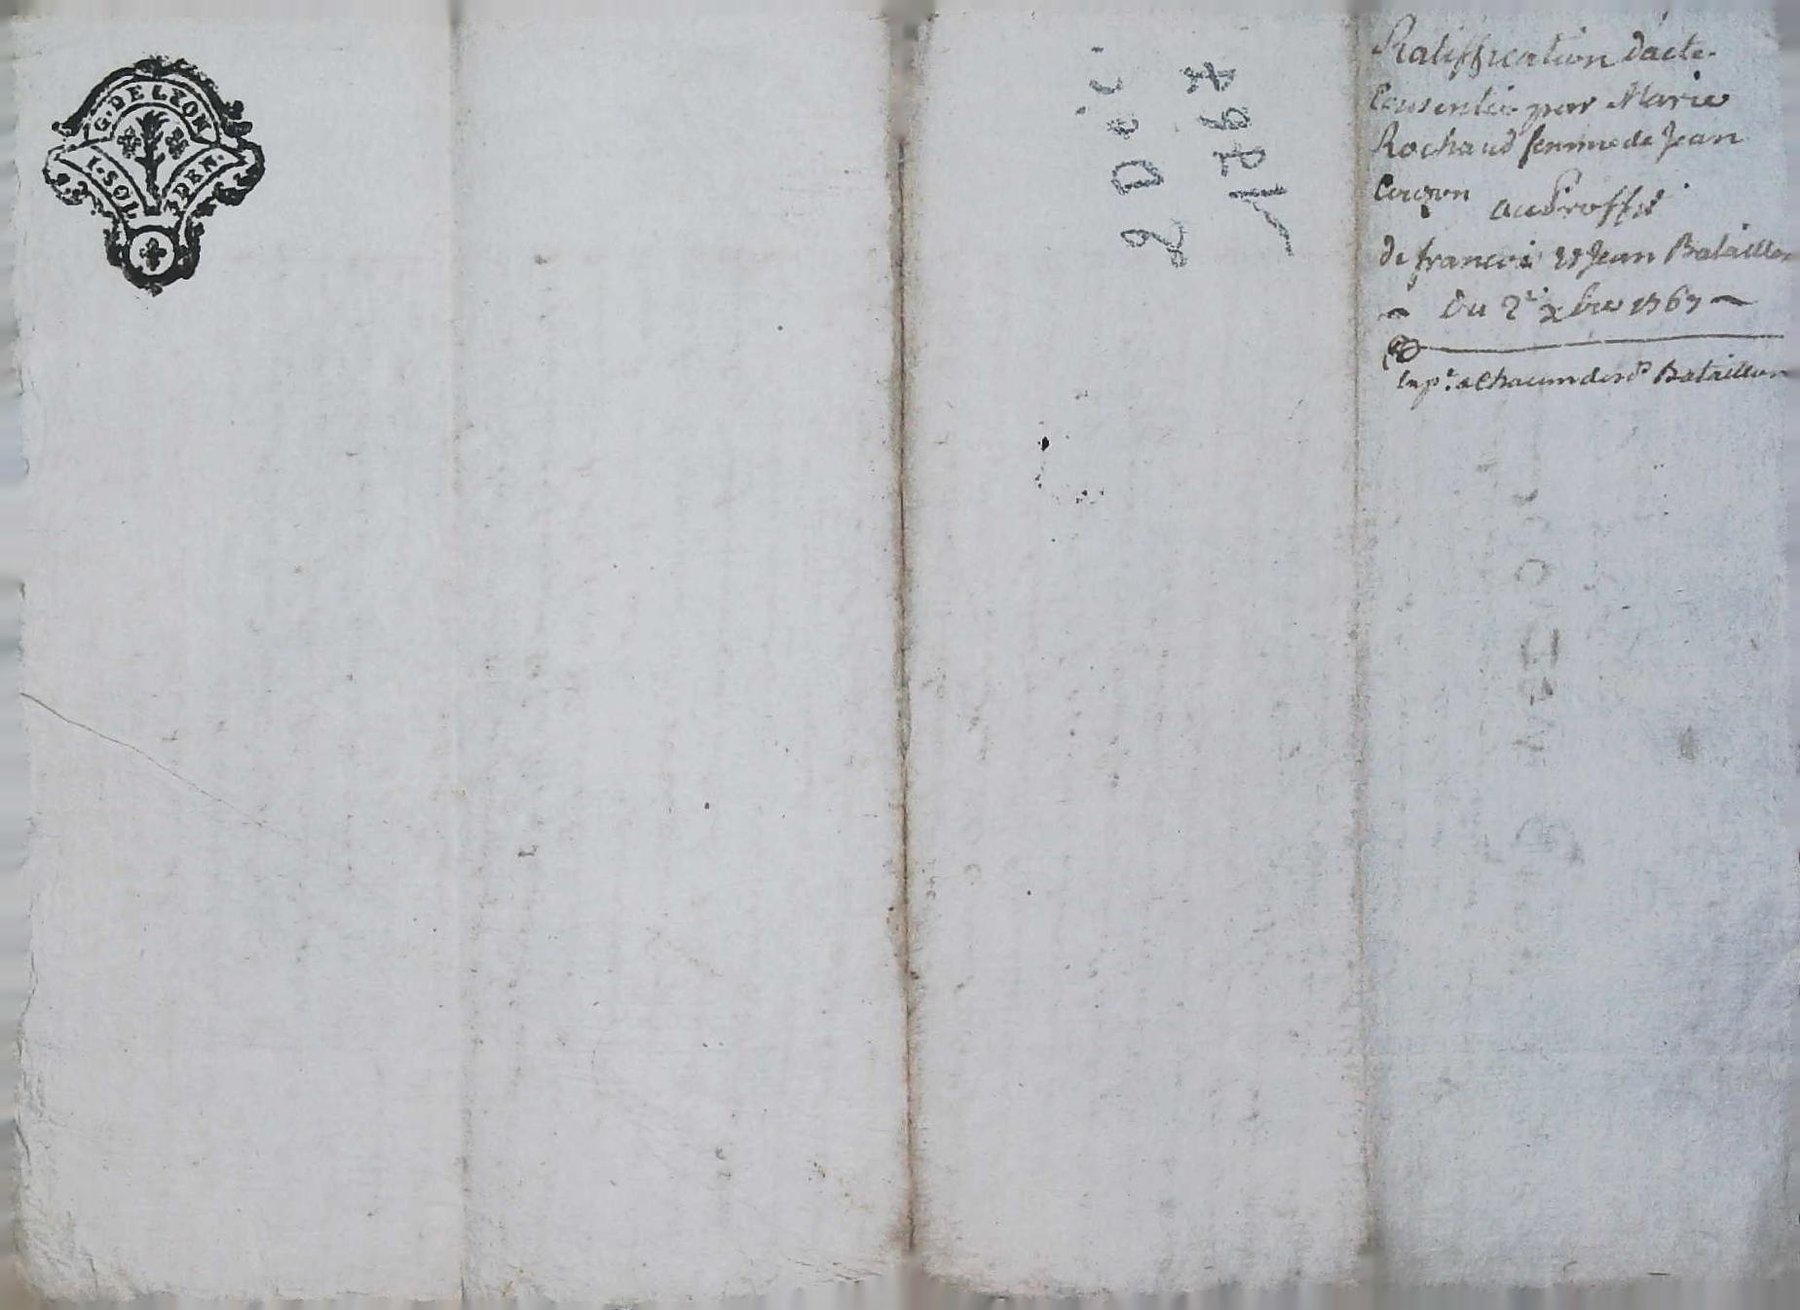 G. DE LYON
I. SOL DEN.
2 Dec
1767
Ratiffication d'acte
Consentie par Marie
Rochaud femme de Jean
au Proffit
de françois et Jean Bataillon
Du 2e xbre 1767
exp.e a Chacun desds Bataillon